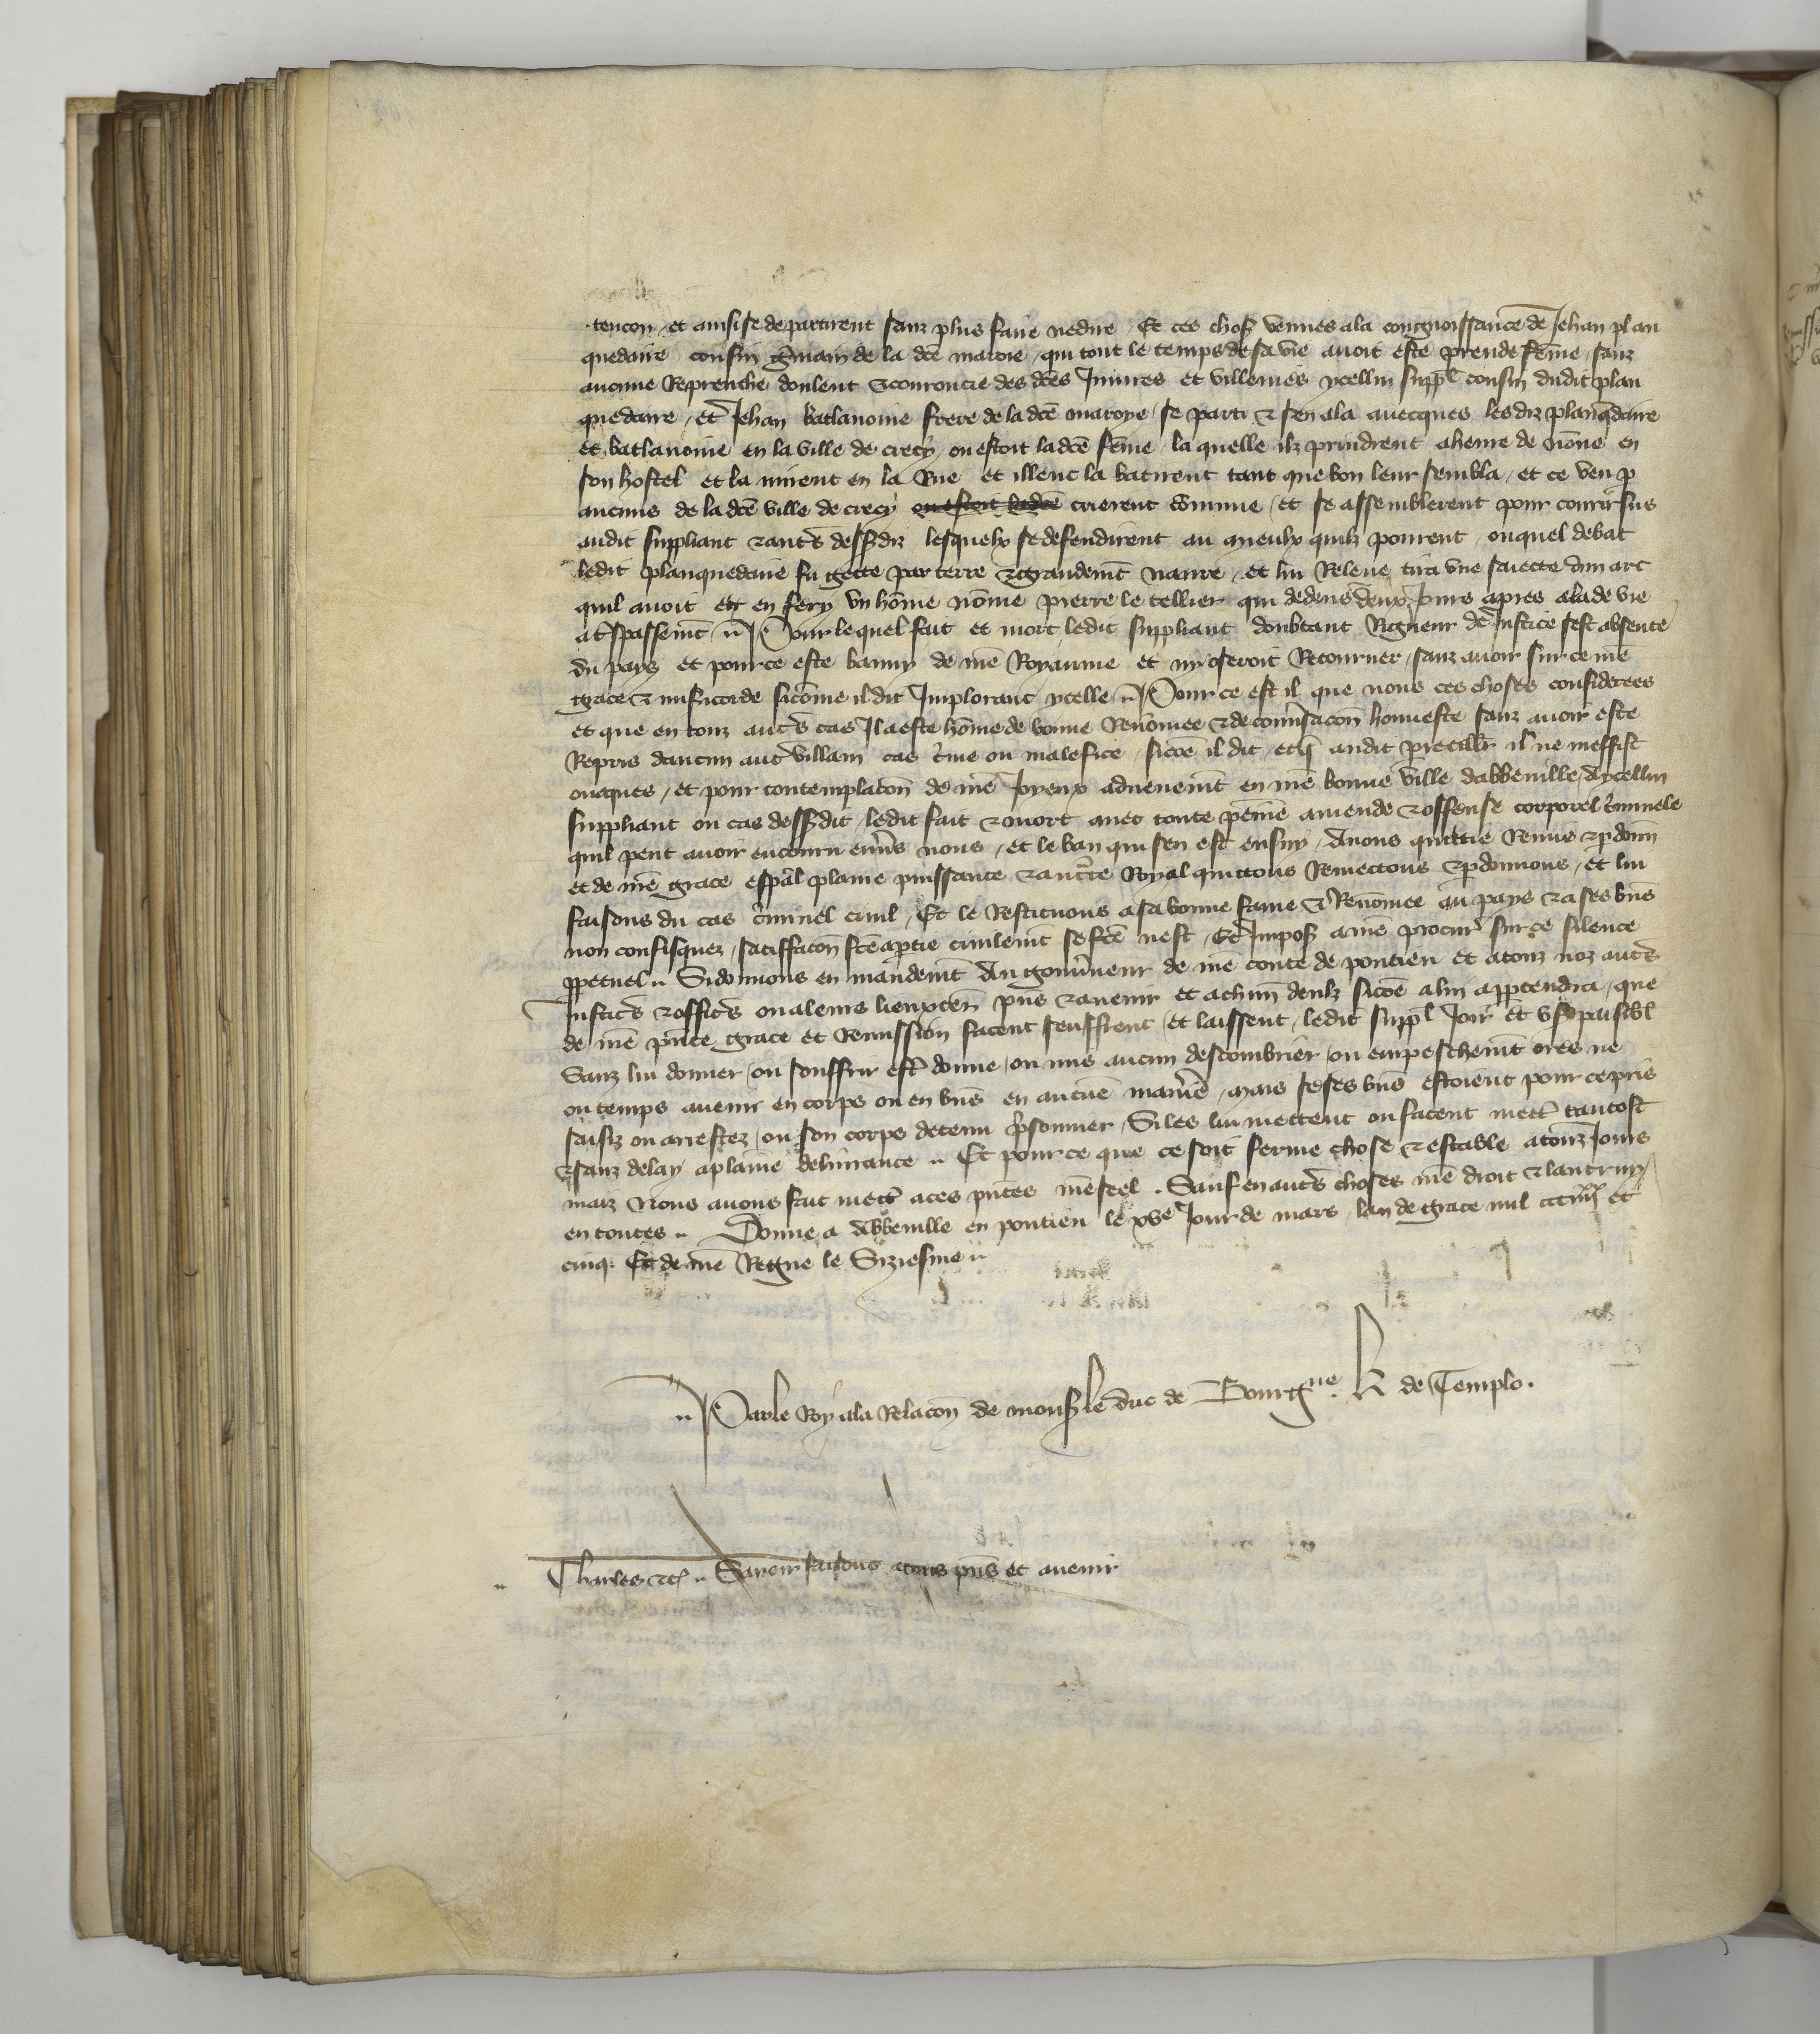 tencon, et ainsi se departirent sanz plus faire ne dire. Et ces choses venues a la congnoissance de Jehan plan
quedaire cousin gmain de la dce maroie, qui tout le temps de sa vie avoit este preude feme, sanz
aucune Reprouche doulent & courroucie des dces Injures et villenies ycellui suppl cousin dudit plan
quedaire, et Jehan batlanoine frere de la dce maroye, se parti & sen ala avecques les diz planqdaire
et batlanoine en la ville de crecy, ou estoit la dce feme, la quelle ilz prindrent a heure de none en
son hostel et la mirent en la Rue et illenc la batirent tant que bon leur sembla, et ce veu p
aucuns de la dce ville de crecy ou estoit ladce crierent commue, et se assemblerent pour courir sus
audit suppliant & autres dessusdiz lesquelx se defendirent au myeulx quilz pourent, ouquel debat
ledit planquedaire fu gette par terre & grandemt navre, et lui Releve tira une saiette dun arc
quil avoit et en fery un home nome pierre le tellier qui dedens deux Jours apres ala de vie
a trespassemt. Pour lequel fait et mort ledit suppliant doubtant Rigueur de Justice sest absente
du pays et pour ce este banny de nre Royaume et ny oseroit Retourner, sanz avoir sur ce nre
grace & misericorde sicome il dit Implorant ycelle. Pour ce est il que nous ces choses considerees
et que en touz autres cas Il a este home de bonne Renomee & de conversacon honneste sanz avoir este
Repris daucun autre villain cas crime ou malefice, sicoe il dit, et q audit pretellier il ne meffist
onques, et pour contemplacon de nre Joyeux advenemt en nre bonne ville dabbeville, Aycellui
suppliant ou cas dessusdit, ledit fait & mort avec toute peine amende & offense corporel criminele
quil peut avoir encouru envers nous, et le ban qui sen est ensuy, Avons quittie Remis & pdonn
et de nre grace espal plaine puissance & auctorite Royal quittons Remectons & pdonnons, et lui
faisons du cas criminel civil, Et le Restituons a sa bonne fame & Renomee au pays & a ses bns
non confisquez, satisfacon fce a ptie civilemt se fce nest, Et Imposons a nre procur sur ce silence
ppetuel. Si donnons en mandemt Au gouverneur de nre conte de pontieu et a touz noz autres
Justiciers & officiers ou a leurs lieuxten pns & avenir et a chun deulx sicoe a lui apptendra, que
de nre pnte grace et Remission facent seuffrent et laissent, ledit suppl Joir et user paisibl
Sanz lui donner, ou souffrir estre donne, ou mis aucun descombrier, ou empeschemt ores ne
ou temps avenir en corps ou en bns en aucune maniere, mais se ses bns estoient pour ce pris
saisiz ou arrestez, ou son corps detenu prisonnier, Si les lui mettent ou facent mettre tantost
& sanz delay a plaine delivrance. Et pource que ce soit ferme chose & estable a touz Jours
maiz Nous avons fait mettre a ces pntes nre seel. Sauf en autres choses nre droit & lautruy
en toutes. Donne a Abbeville en pontieu le xve Jour de mars, lan de grace mil ccciiiixx et
cinq. Et de nre Regne le Siziesme.
Par le Roy a la Relacon de mons le duc de Bourgne. R de Templo.
Charles &c. Savoir faisons a tous pns et avenir